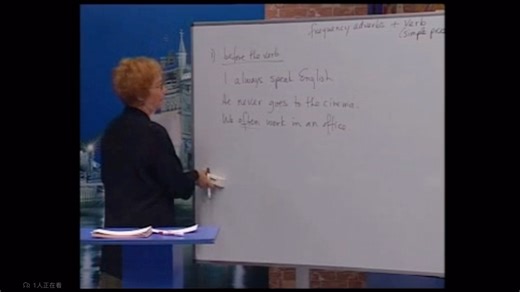 frequency adverbs + Verb
(simple pres
1) before the verb
I always speak English.
He never goes to the cinema.
We often work in an office
1人正在看